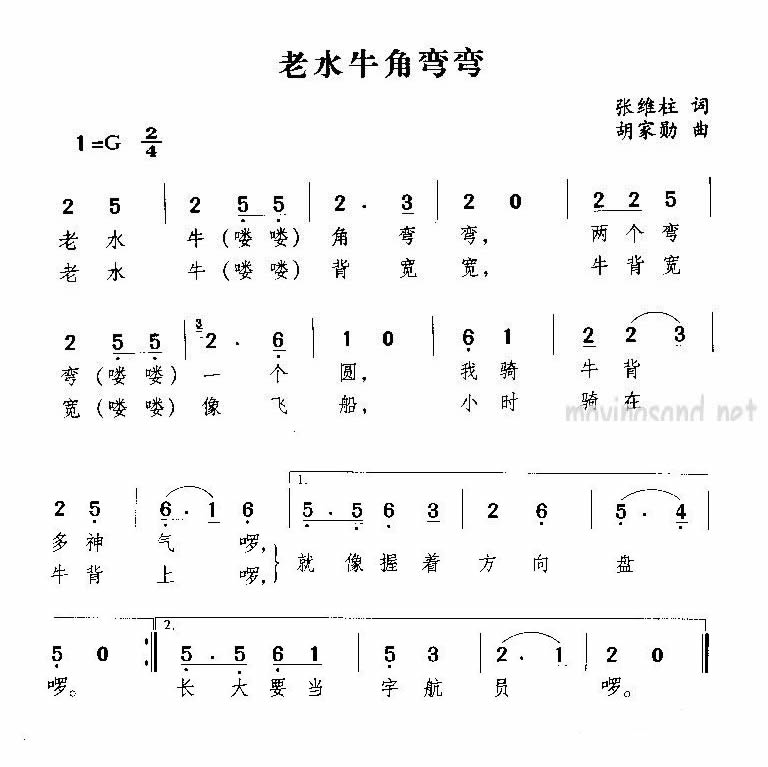 老水牛角弯弯
张维柱 词
胡家勋 曲
1=G 2/4
2 5 | 2 5 5 | 2 . 3 | 2 0 | 2 2 5 |
老 水 牛(喽 喽) 角 弯 弯, 两 个 弯
老 水 牛(喽 喽) 背 宽 宽, 牛 背 宽
2 5 5 | 3 2 . 6 | 1 0 | 6 1 | 2 2 3 |
弯(喽 喽) 一 个 圆, 我 骑 牛 背
宽(喽 喽) 像 飞 船, 小 时 骑 在
1.
2 5 | 6 . 1 6 | 5 . 5 6 3 | 2 6 | 5 . 4 |
多 神 气 啰, 就 像 握 着 方 向 盘
牛 背 上 啰,
2.
5 0 :| 5 . 5 6 1 | 5 3 | 2 . 1 | 2 0 |
啰。 长 大 要 当 宇 航 员 啰。